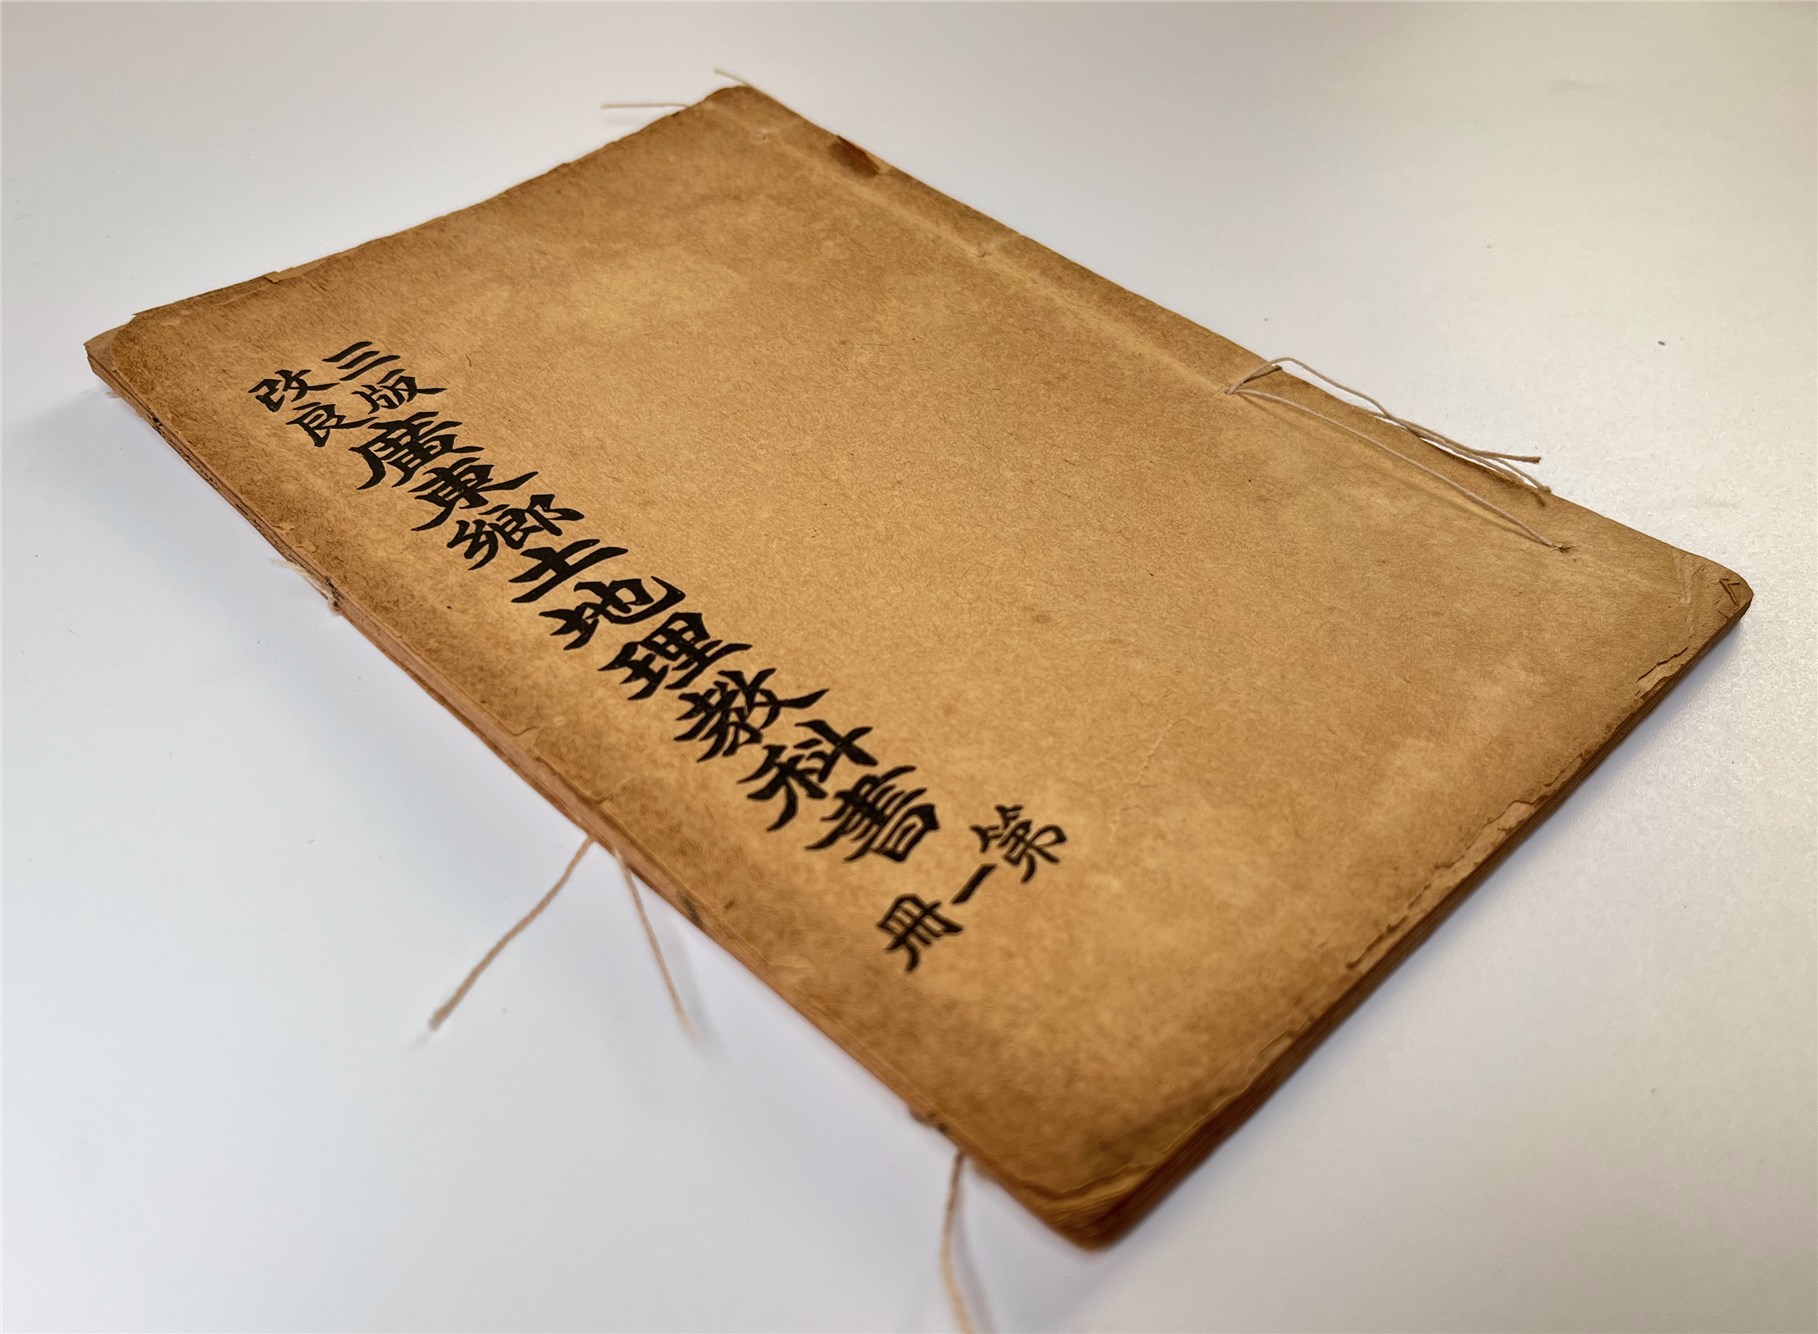 三版
改良
廣東鄉土地理教科書
第一冊